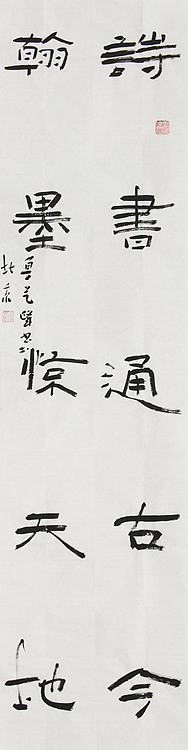 詩書通古今
翰墨惊天地
北京